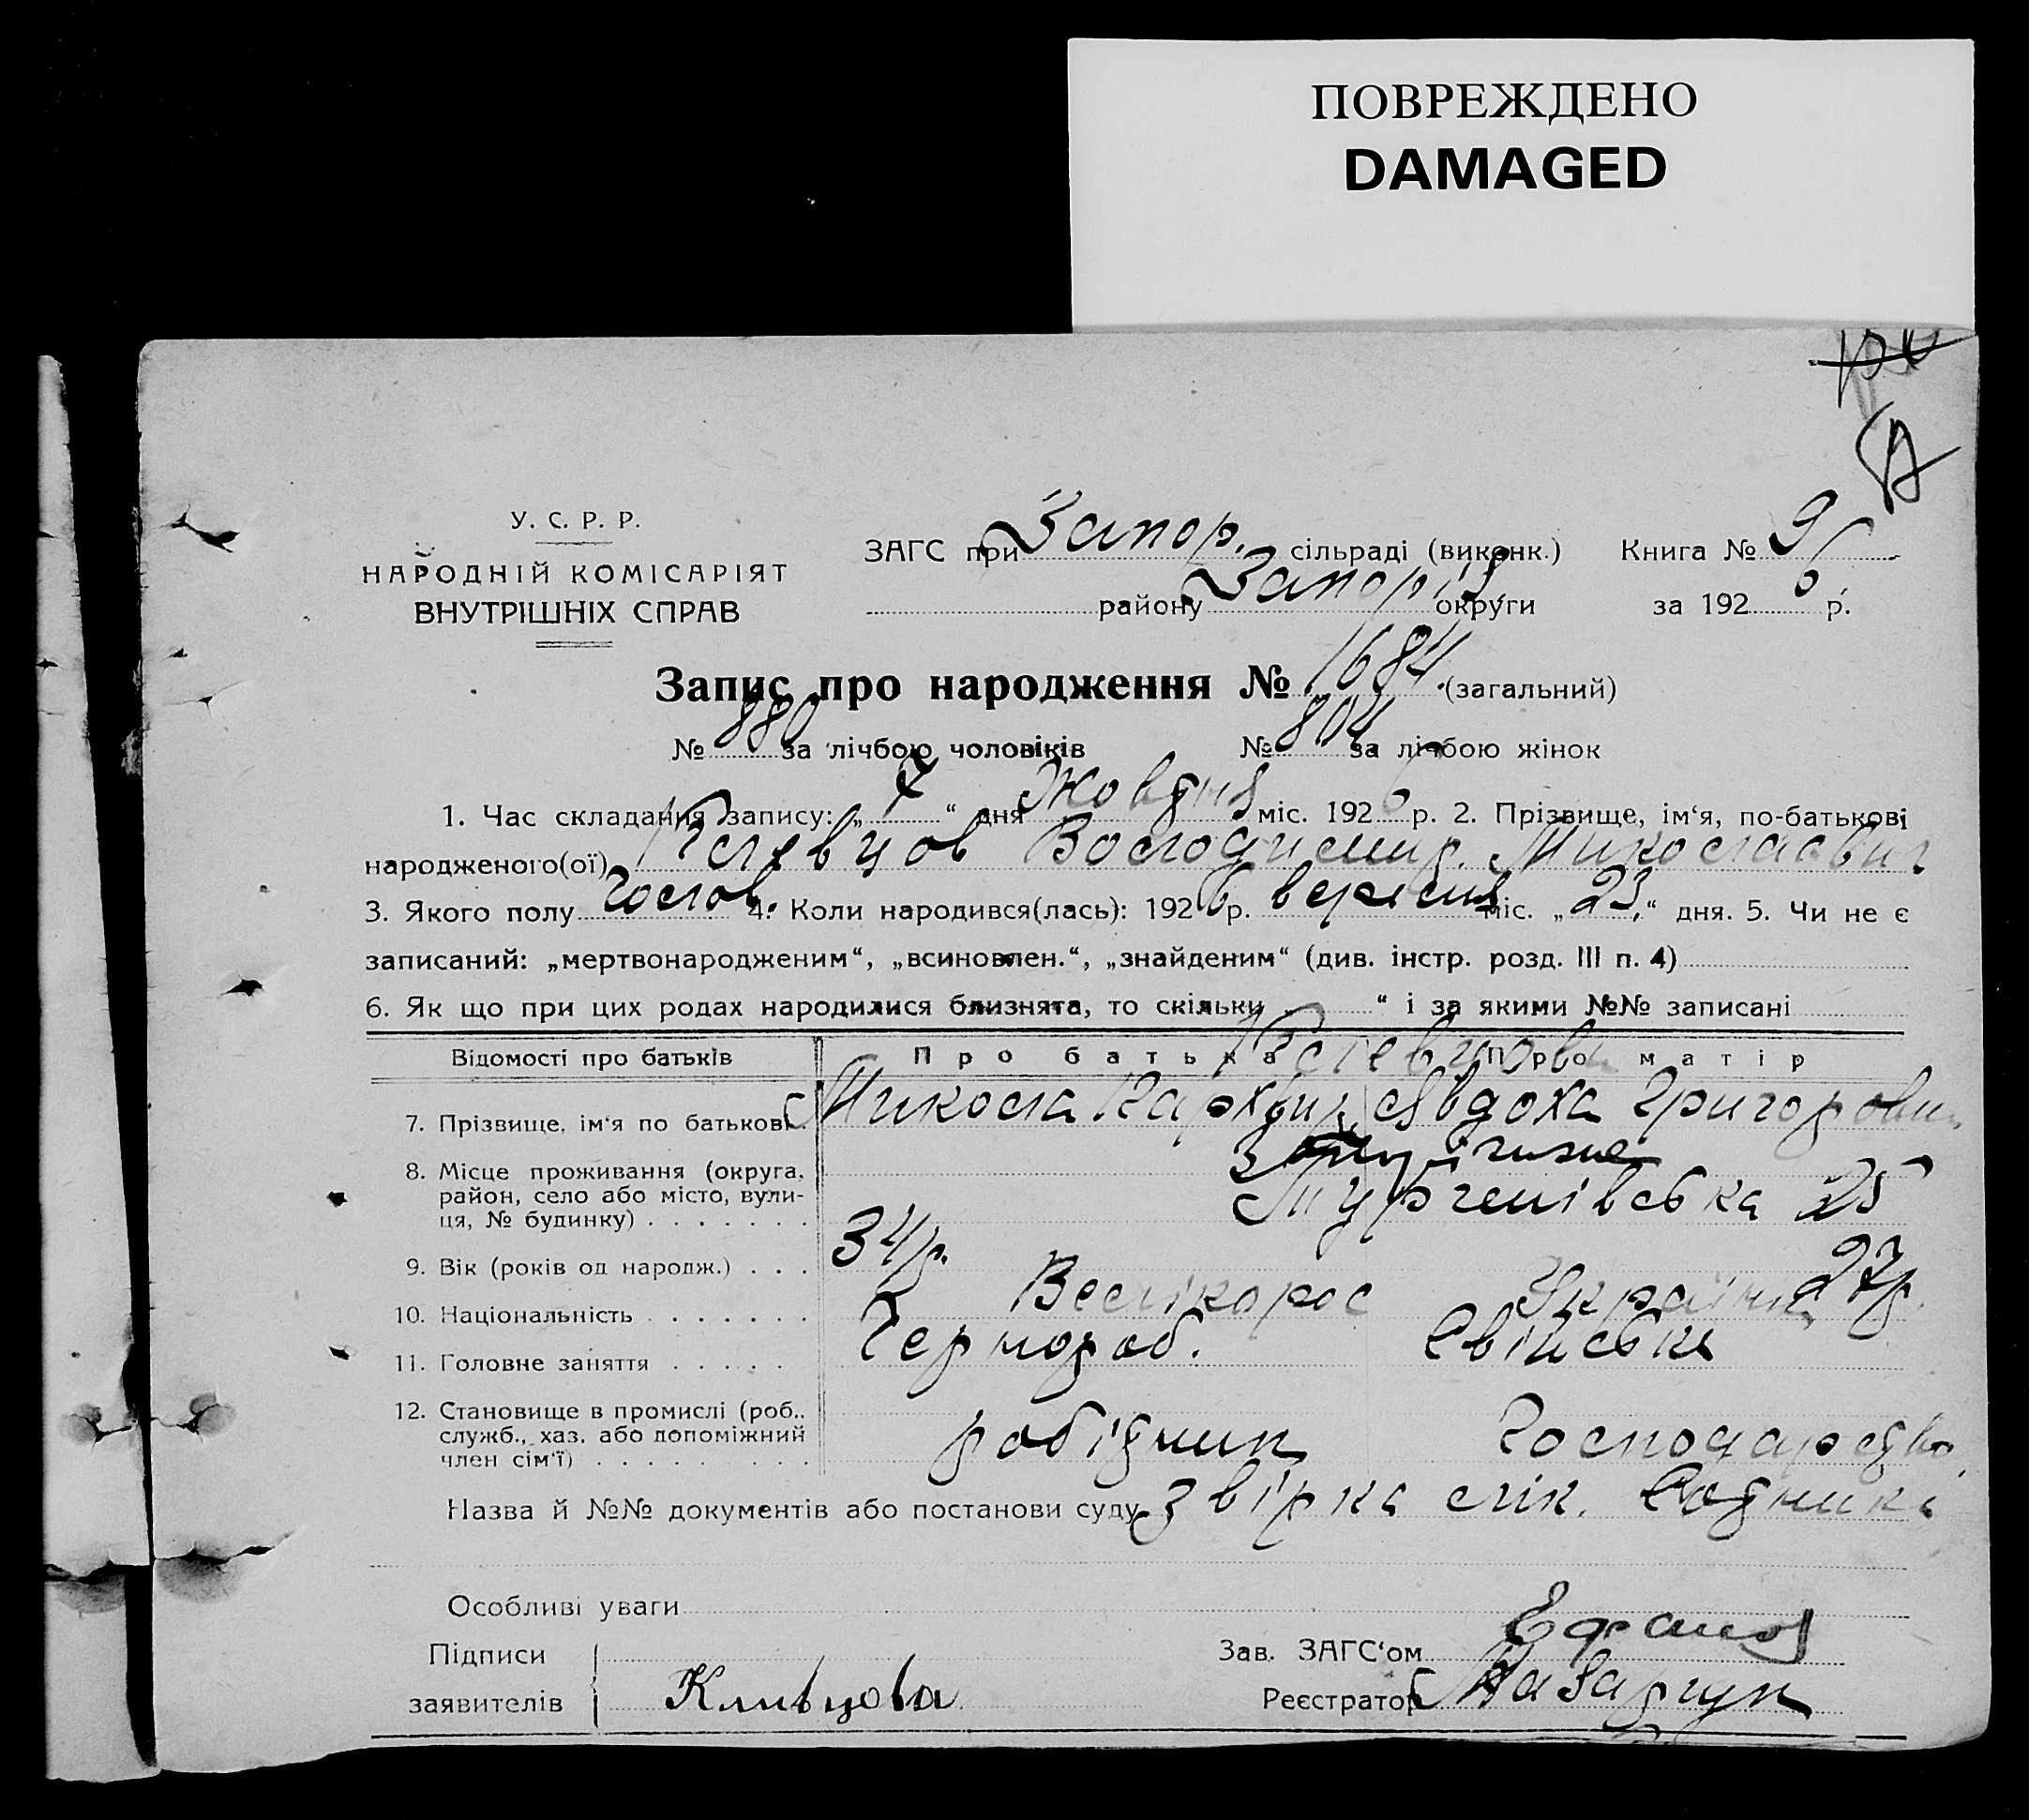 ПОВРЕЖДЕНО
DAMAGED
У. С. Р. Р.
НАРОДНІЙ КОМІСАРІЯТ
ВНУТРІШНІХ СПРАВ
ЗАГС при Запор. сільраді (виконк.) Книга № 9
району Запоріз. округи за 192 6 р.
Запис про народження № 1684 (загальний)
№ 880 за лічбою чоловіків № 804 за лічбою жінок
1. Час складання запису: „ 7 “ дня Жовтня міс. 192 6 р. 2. Прізвище, ім‘я, по-батькові
народженого(ої) Клевцов Володимир Миколаевич
3. Якого полу Чолов. 4. Коли народився(лась): 192 6 р. вересня міс. „ 23 “ дня. 5. Чи не є
записаний: „мертвонародженим“, „всиновлен.“, „знайденим“ (див. інстр. розд. III п. 4)
6. Як що при цих родах народилися близнята, то скільки “ і за якими №№ записані
Відомості про батьків Про батька Про матір
Клевцови
7. Прізвище, ім‘я по батькові Микола Явдоха Григоровн.
8. Місце проживання (округа,
район, село або місто, вули-
ця, № будинку) Тургенівська 25
9. Вік (років од народж.) 34 р. 27 р.
10. Національність Велікорос Україн.
11. Головне заняття Чернороб. Свійське
12. Становище в промислі (роб.,
служб., хаз. або допоміжний
член сім‘ї) робітник Господарство
Назва й №№ документів або постанови суду звірка лік.
Особливі уваги
Підписи Зав. ЗАГС‘ом
заявителів Кливцова Реєстратор Назарчук